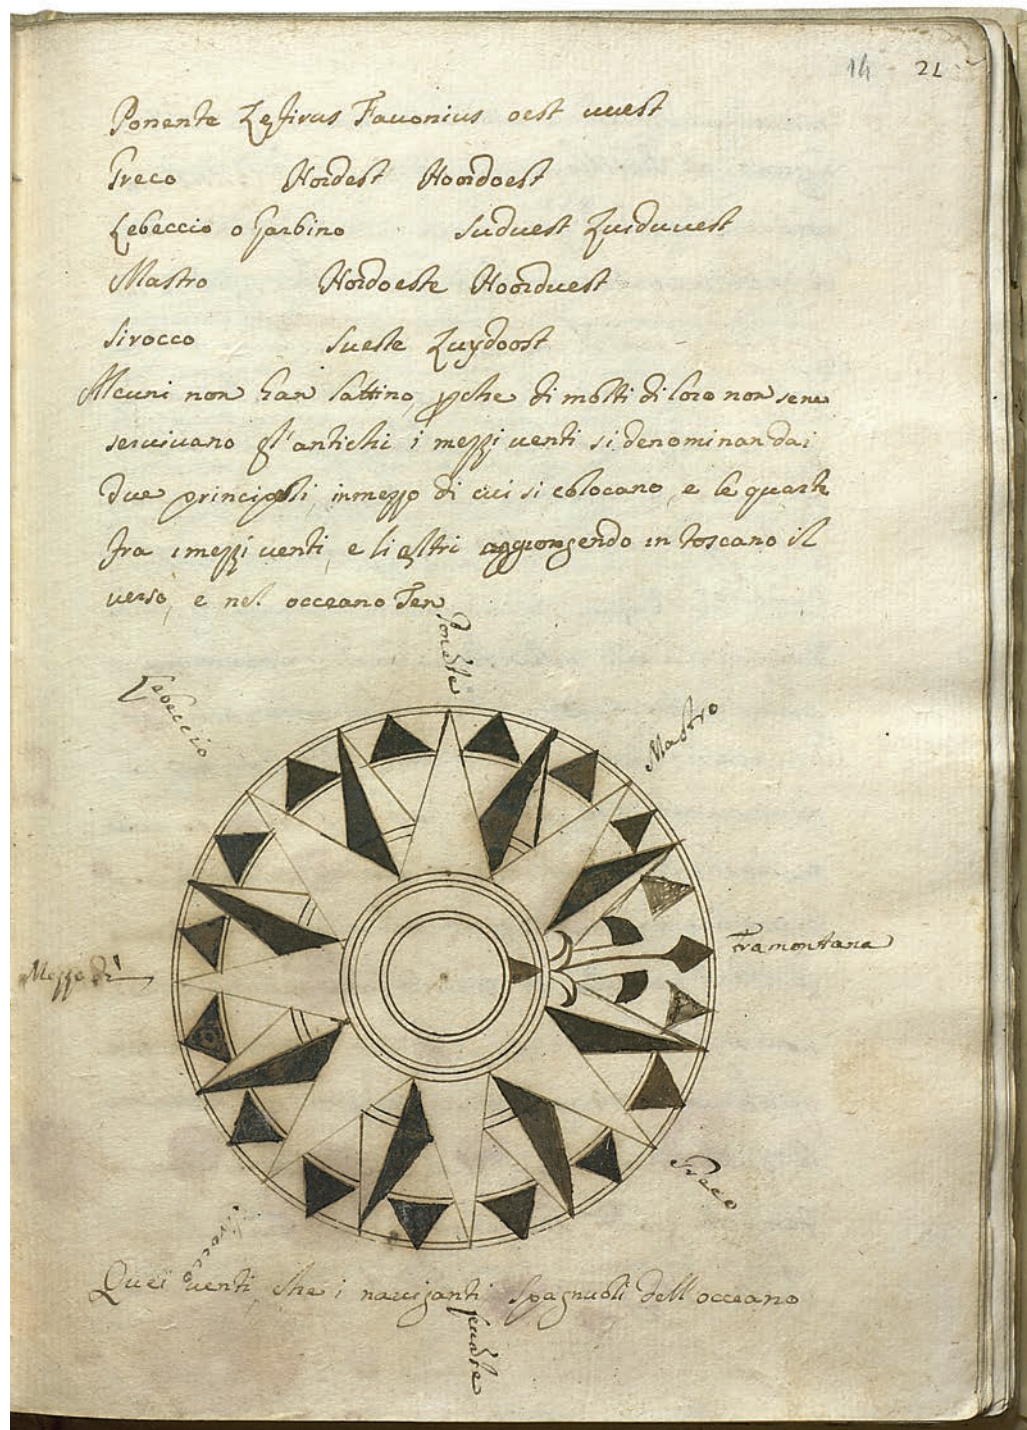 14 21
Ponente Zefirus Fauonius oest vuest
Greco Nordest Noordoest
Lebeccio o Garbino Suduest Zuiduuest
Mastro Nordoeste Noorduest
Sirocco Sueste Zuydoost
Alcuni non han lattino, pche di molti di loro non sene
seruiuano gl'antichi i mezzi uenti si denominan dai
due principali, in mezzo di cui si colocano, e le quarte
fra i mezzi uenti, e li altri aggiongendo in toscano il
uerso, e nel occeano Ten
Ponẽte
Lebeccio
Mastro
Mezzo dì
Tramontana
Greco
Sirocco
Quei uenti, che i nauiganti Spagnuoli dell occeano